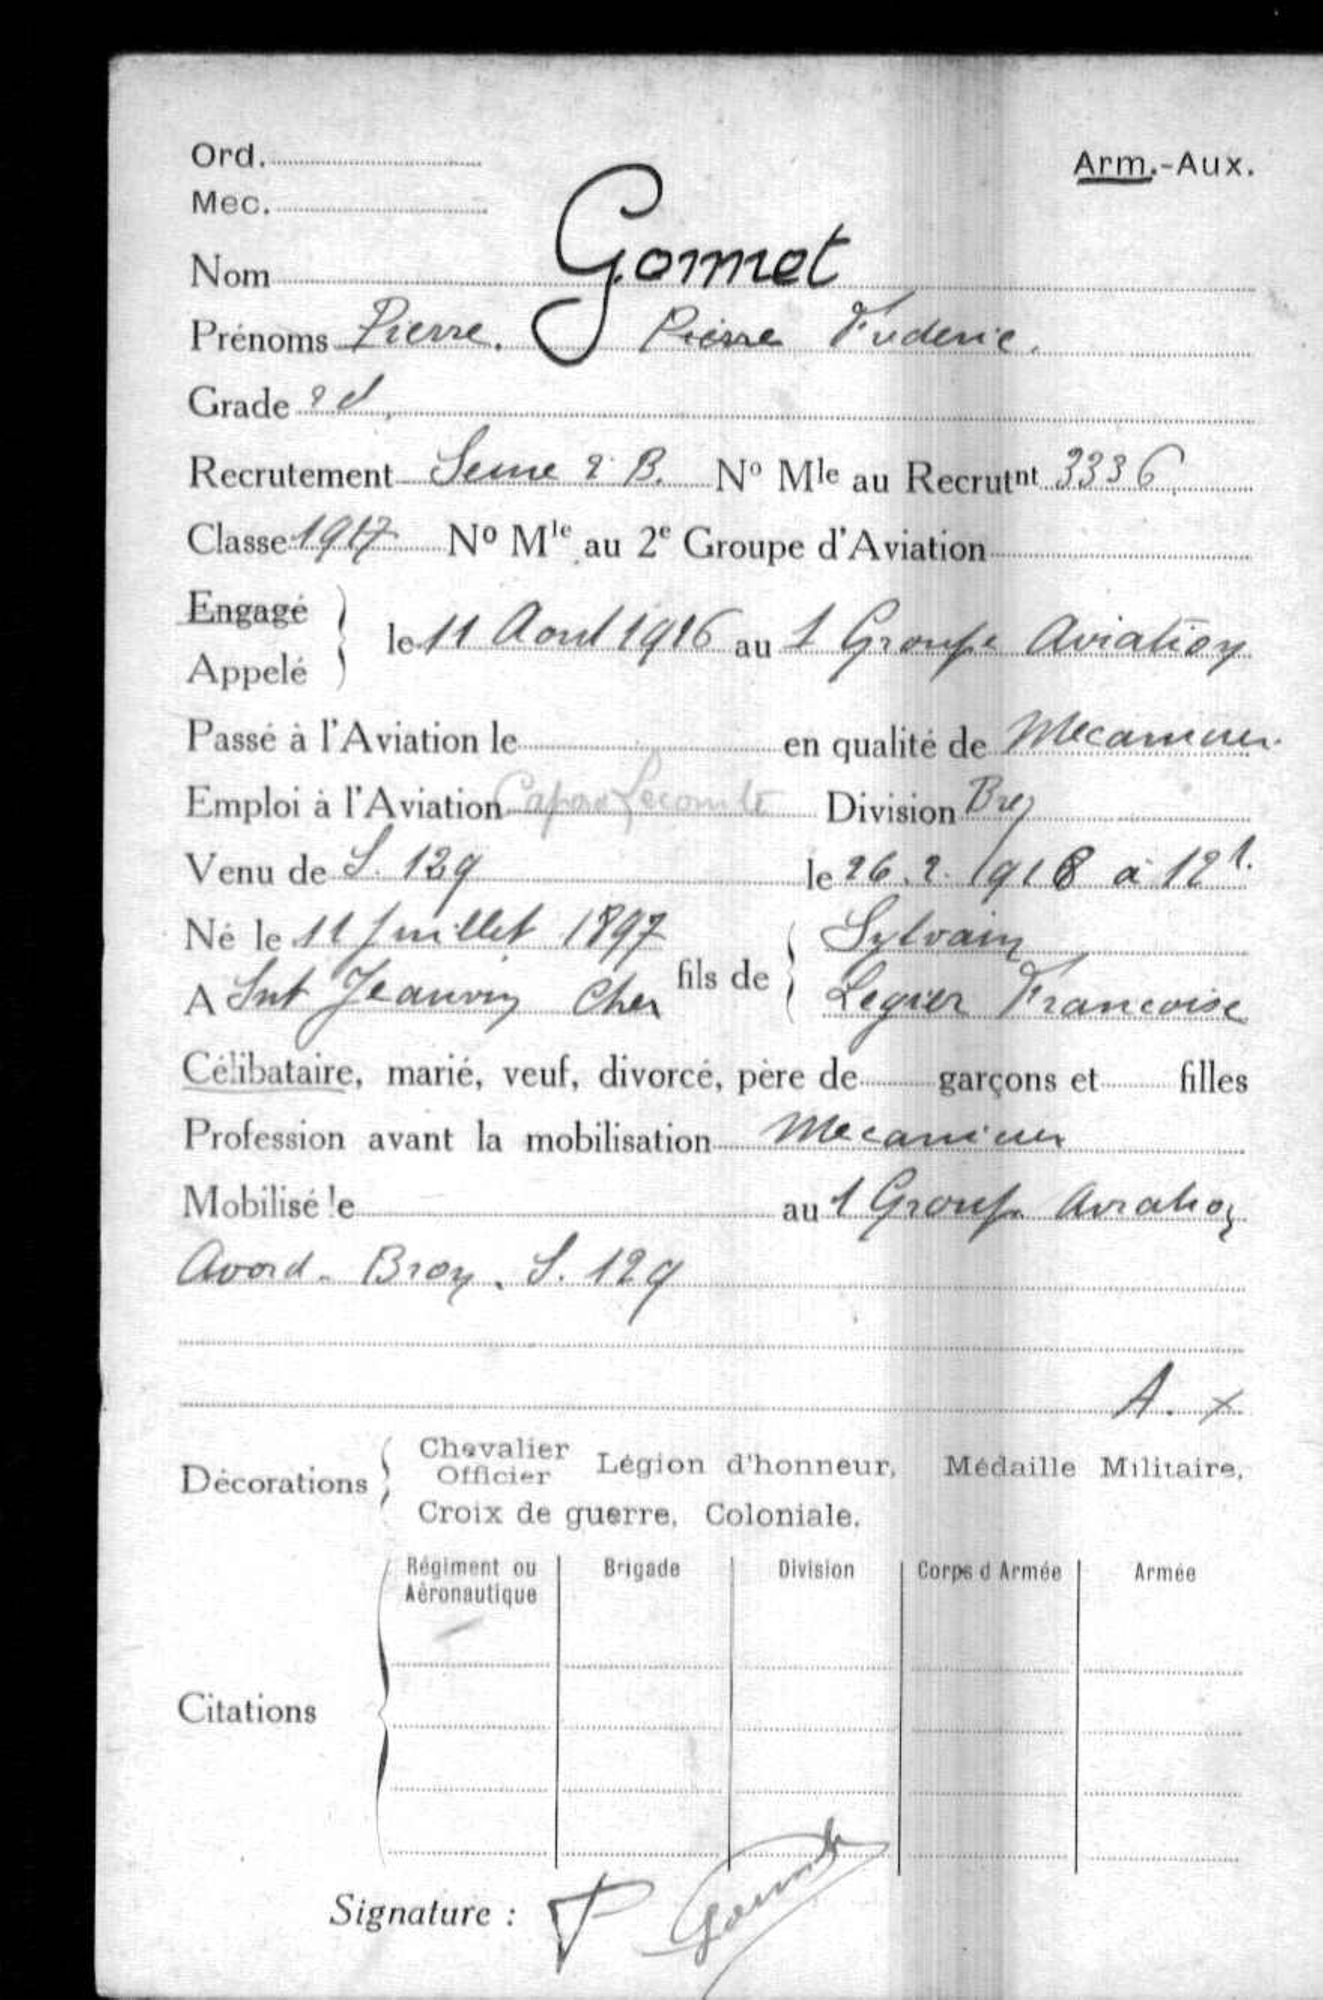 Ord.
Arm.-Aux.
Mec.
Nom Gomet
Prénoms Pierre. Pierre Frederic.
Grade 2 cl,
Recrutement Seine 2 B. No Mle au Recrutnt 3336
Classe 1917 No Mle au 2e Groupe d'Aviation
Engagé
Appelé
le 11 Aout 1916 au 1 Groupe Aviation
Passé à l'Aviation le en qualité de Mecanicien
Emploi à l'Aviation Lecomte Division Brey
Venu de S. 129 le 26.2.1918 à 12h.
Né le 11 Juillet 1897
A Snt Jeanvrin Cher
fils de
Sylvain
Legier Francoise
Célibataire, marié, veuf, divorcé, père de garçons et filles
Profession avant la mobilisation Mecanicien
Mobilisé le au 1 Groupe Aviation
Avord. Broy. S. 129
A. x
Décorations
Chevalier
Officier
Légion d'honneur, Médaille Militaire,
Croix de guerre, Coloniale.
Citations
Régiment ou Aéronautique
Brigade
Division
Corps d Armée
Armée
Signature :